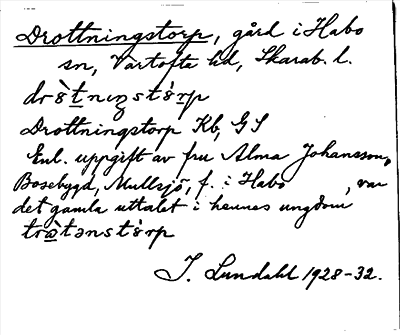 Drottningstorp, gård i Habo
sn, Vartofta hd, Skarab. l.
drò̀tnıŋstórp
Drottningstorp Kb, GS
Enl. uppgift av fru Alma Johansson,
Bosebygd, Mullsjö, f. i Habo, var
det gamla uttalet i hennes ungdom
trò̀tənstórp
I. Lundahl 1928-32.